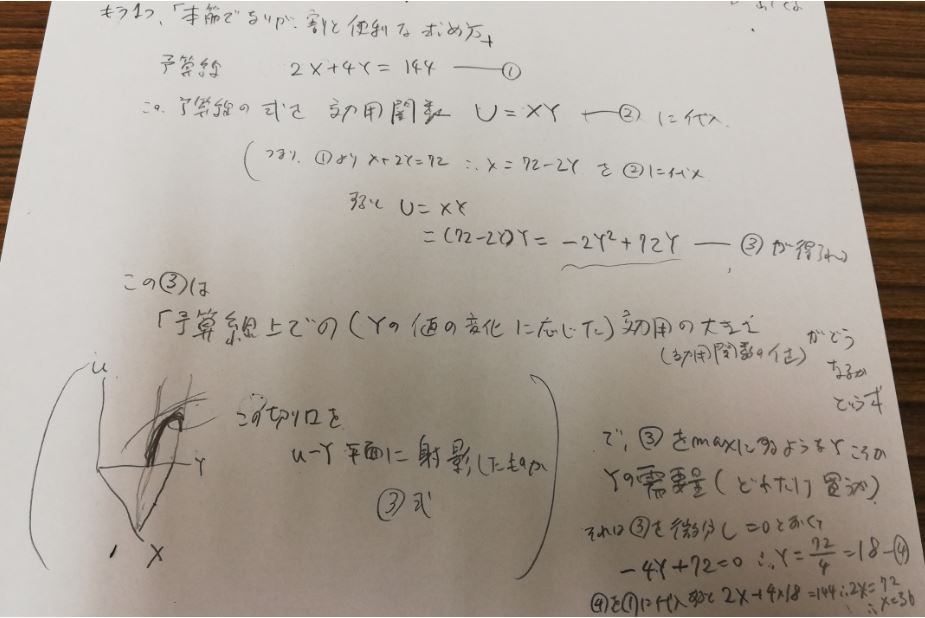 もう1つ、「本筋でないが、割と便利な求め方」
予算線 2X+4Y=144 ――①
この予算線の式を 効用関数 U=XY ―② に代入
(つまり、①より X+2Y=72 ∴X=72-2Y を②に代入
すると U=XY
=(72-2Y)Y=-2Y²+72Y ―― ③ が得られる
この③は
「予算線上での(Yの値の変化に応じた)効用の大きさ
(効用関数の値)
がどう
なるか
という式
U
Y
X
この切り口を
u-Y平面に射影したものが
③式
で、③をmaxにするようなYこそが
Yの需要量(どれだけ買うか)
それは③を微分し=0とおくと
-4Y+72=0 ∴Y=72/4=18-④
④を①に代入すると 2X+4×18=144∴2X=72
∴X=36